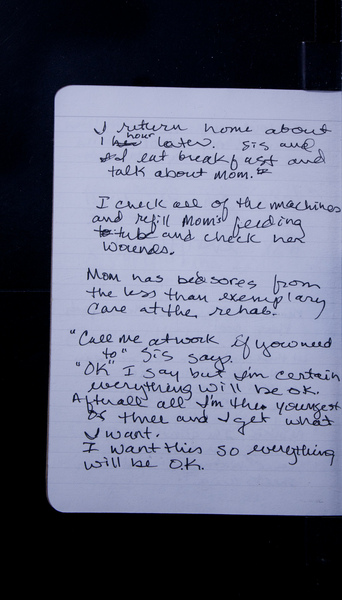 I return home about
1 hour later. Sis and
I eat breakfast and
talk about Mom.
I check all of the machines
and refill Mom's feeding
tube and check her
wounds.
Mom has bedsores from
the less than exemplary
care at the rehab.
"Call me at work if you need
to" Sis says.
"OK" I say but I'm certain
everything will be ok.
Afterall all I'm the youngest
of three and I get what
I want.
I want this so everything
will be OK.